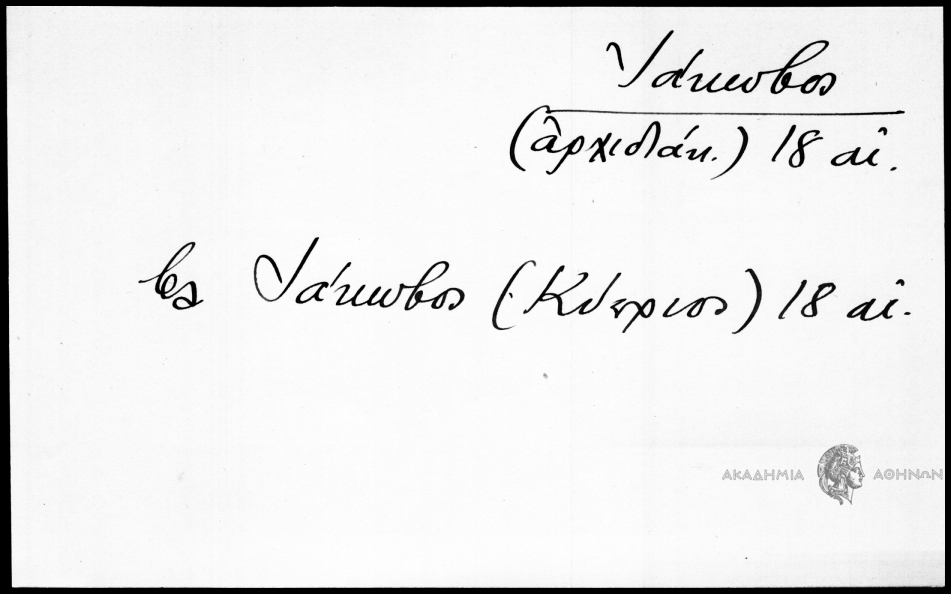 Ἰάκωβος
(ἀρχιδιάκ.) 18 αἰ.
βλ Ἰάκωβος (Κύπριος) 18 αἰ.
ΑΚΑΔΗΜΙΑ ΑΘΗΝΩΝ